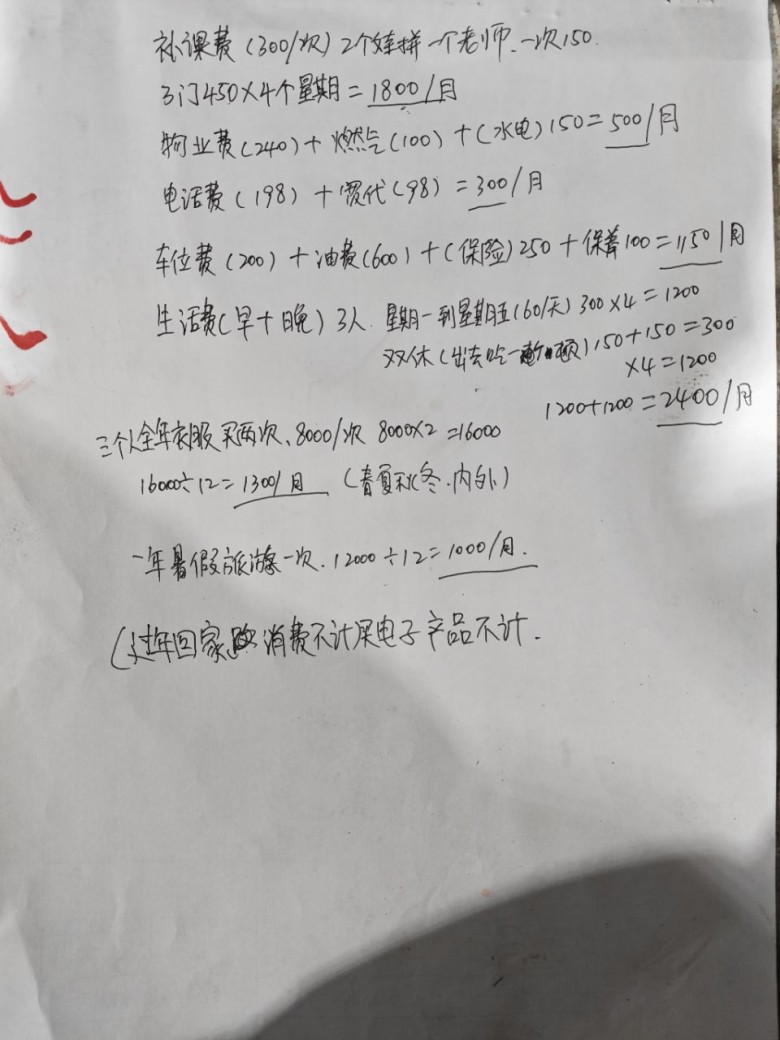 补课费(300/次)2个娃拼一个老师、一次150.
3门450×4个星期=1800/月
物业费(240)+燃气(100)+(水电)150=500/月
电话费(198)+宽代(98)=300/月
车位费(200)+油费(600)+(保险)250+保养100=1150/月
生活费(早+晚)3人. 星期一到星期五(60/天)300×4=1200
双休(出去吃一顿)150+150=300
×4=1200
1200+1200=2400/月
三个人全年衣服买两次、8000/次 8000×2=16000
16000÷12=1300/月 (春夏秋冬.内外)
一年暑假旅游一次.12000÷12=1000/月.
(过年回家 消费不计买电子产品不计.